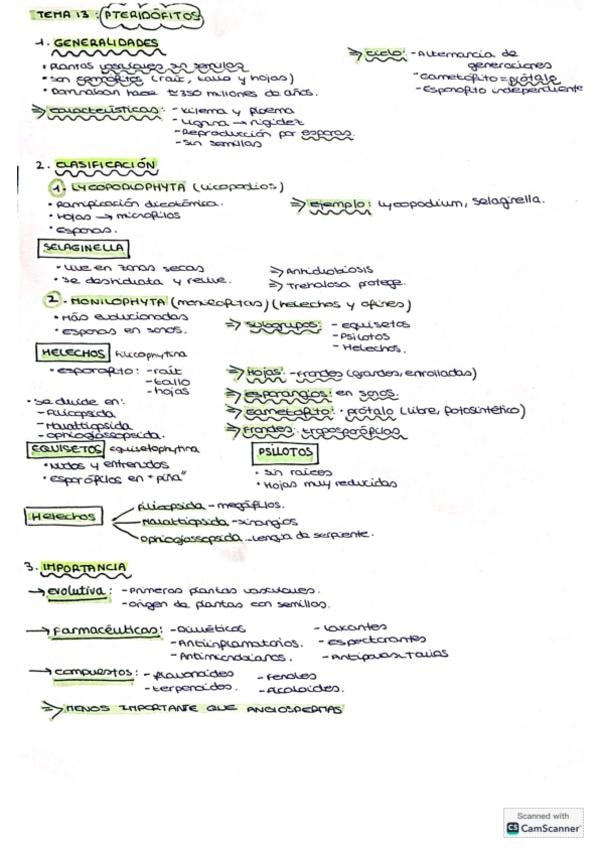 TEMA 13: PTERIDÓFITOS
1. GENERALIDADES
• Plantas vasculares sin semillas
• Son cormófitos (raíz, tallo y hojas)
• Dominaban hace ≈350 millones de años.
⇒ Ciclo: - Alternancia de generaciones
- Gametofito = prótalo
- Esporofito independiente
⇒ Características: - Xilema y floema
- Lignina → rigidez
- Reproducción por esporas.
- Sin semillas
2. CLASIFICACIÓN
1. LYCOPODIOPHYTA (licopodios)
• Ramificación dicotómica.
• Hojas → microfilos
• Esporas.
⇒ Ejemplo: Lycopodium, Selaginella.
SELAGINELLA
• Vive en zonas secas
• Se deshidrata y revive.
⇒ Anhidrobiosis
⇒ Trehalosa protege.
2. MONILOPHYTA (monilofitas) (helechos y afines)
• Más evolucionadas
• Esporas en soros.
⇒ Subgrupos: - equisetos
- Psilotos
- Helechos.
HELECHOS Filicophytina
• esporofito: - raíz
- tallo
- hojas
• Se divide en:
- Filicopsida
- Marattiopsida
- Ophioglossopsida.
⇒ Hojas: - Frondes (grandes, enrolladas)
⇒ Esporangios: en soros.
⇒ Gametofito: • prótalo (libre, fotosintético)
⇒ Frondes: troposporófilos
EQUISETOS equisetophytina
• Nudos y entrenudos
• Esporófilos en "piña"
PSILOTOS
• Sin raíces
• Hojas muy reducidas
Helechos
Filicopsida - megáfilos.
Marattiopsida - sinangios
Ophioglossopsida - Lengua de serpiente.
3. IMPORTANCIA
→ evolutiva: - Primeras plantas vasculares.
- origen de plantas con semillas.
→ Farmacéuticas: - Diuréticos
- Antiinflamatorios.
- Antimicrobianos.
- Laxantes
- Espectorantes
- Antiparasitarias
→ compuestos: - flavonoides
- terpenoides.
- Fenoles
- Alcaloides.
⇒ MENOS IMPORTANTE QUE ANGIOSPERMAS
Scanned with
CS CamScanner